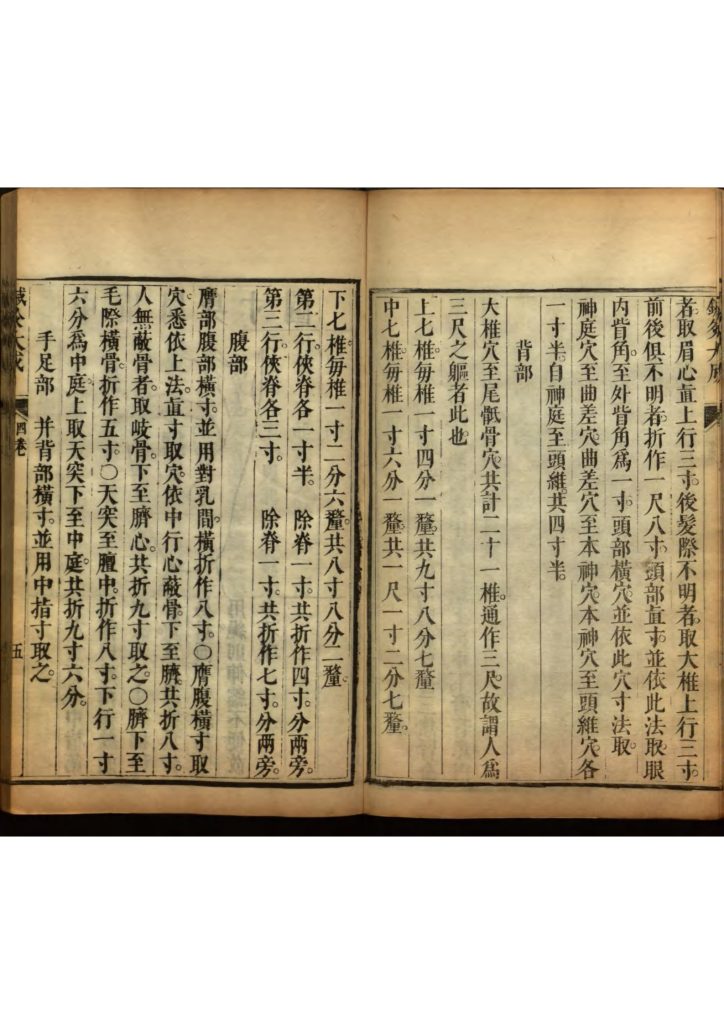 者取眉心直上行三寸。後髮際不明者。取大椎上行三寸。
前後俱不明者。折作一尺八寸。頭部直寸。並依此法取眼
內眥角。至外眥角爲一寸。頭部橫穴。並依此穴寸法取。
神庭穴至曲差穴。曲差穴至本神穴。本神穴至頭維穴。各
一寸半。自神庭至頭維。共四寸半。
背部
大椎穴至尾骶骨穴。共計二十一椎。通作三尺。故謂人爲
三尺之軀者此也。
上七椎。每椎一寸四分一釐。共九寸八分七釐
中七椎。每椎一寸六分一釐。共一尺一寸二分七釐。
下七椎。每椎一寸二分六釐。共八寸八分二釐
第二行。俠脊各一寸半。除脊一寸。共折作四寸。分兩旁。
第三行。俠脊各三寸。除脊一寸。共折作七寸。分兩旁。
腹部
膺部腹部橫寸。並用對乳間。橫折作八寸。〇膺腹橫寸取
穴。悉依上法。直寸取穴。依中行心蔽骨下至臍。共折八寸。
人無蔽骨者。取岐骨。下至臍心。共折九寸取之。〇臍下至
毛際橫骨。折作五寸。〇天突至膻中。折作八寸。下行一寸
六分爲中庭。上取天突下至中庭。共折九寸六分。
手足部 并背部橫寸。並用中指寸取之。
四卷
五